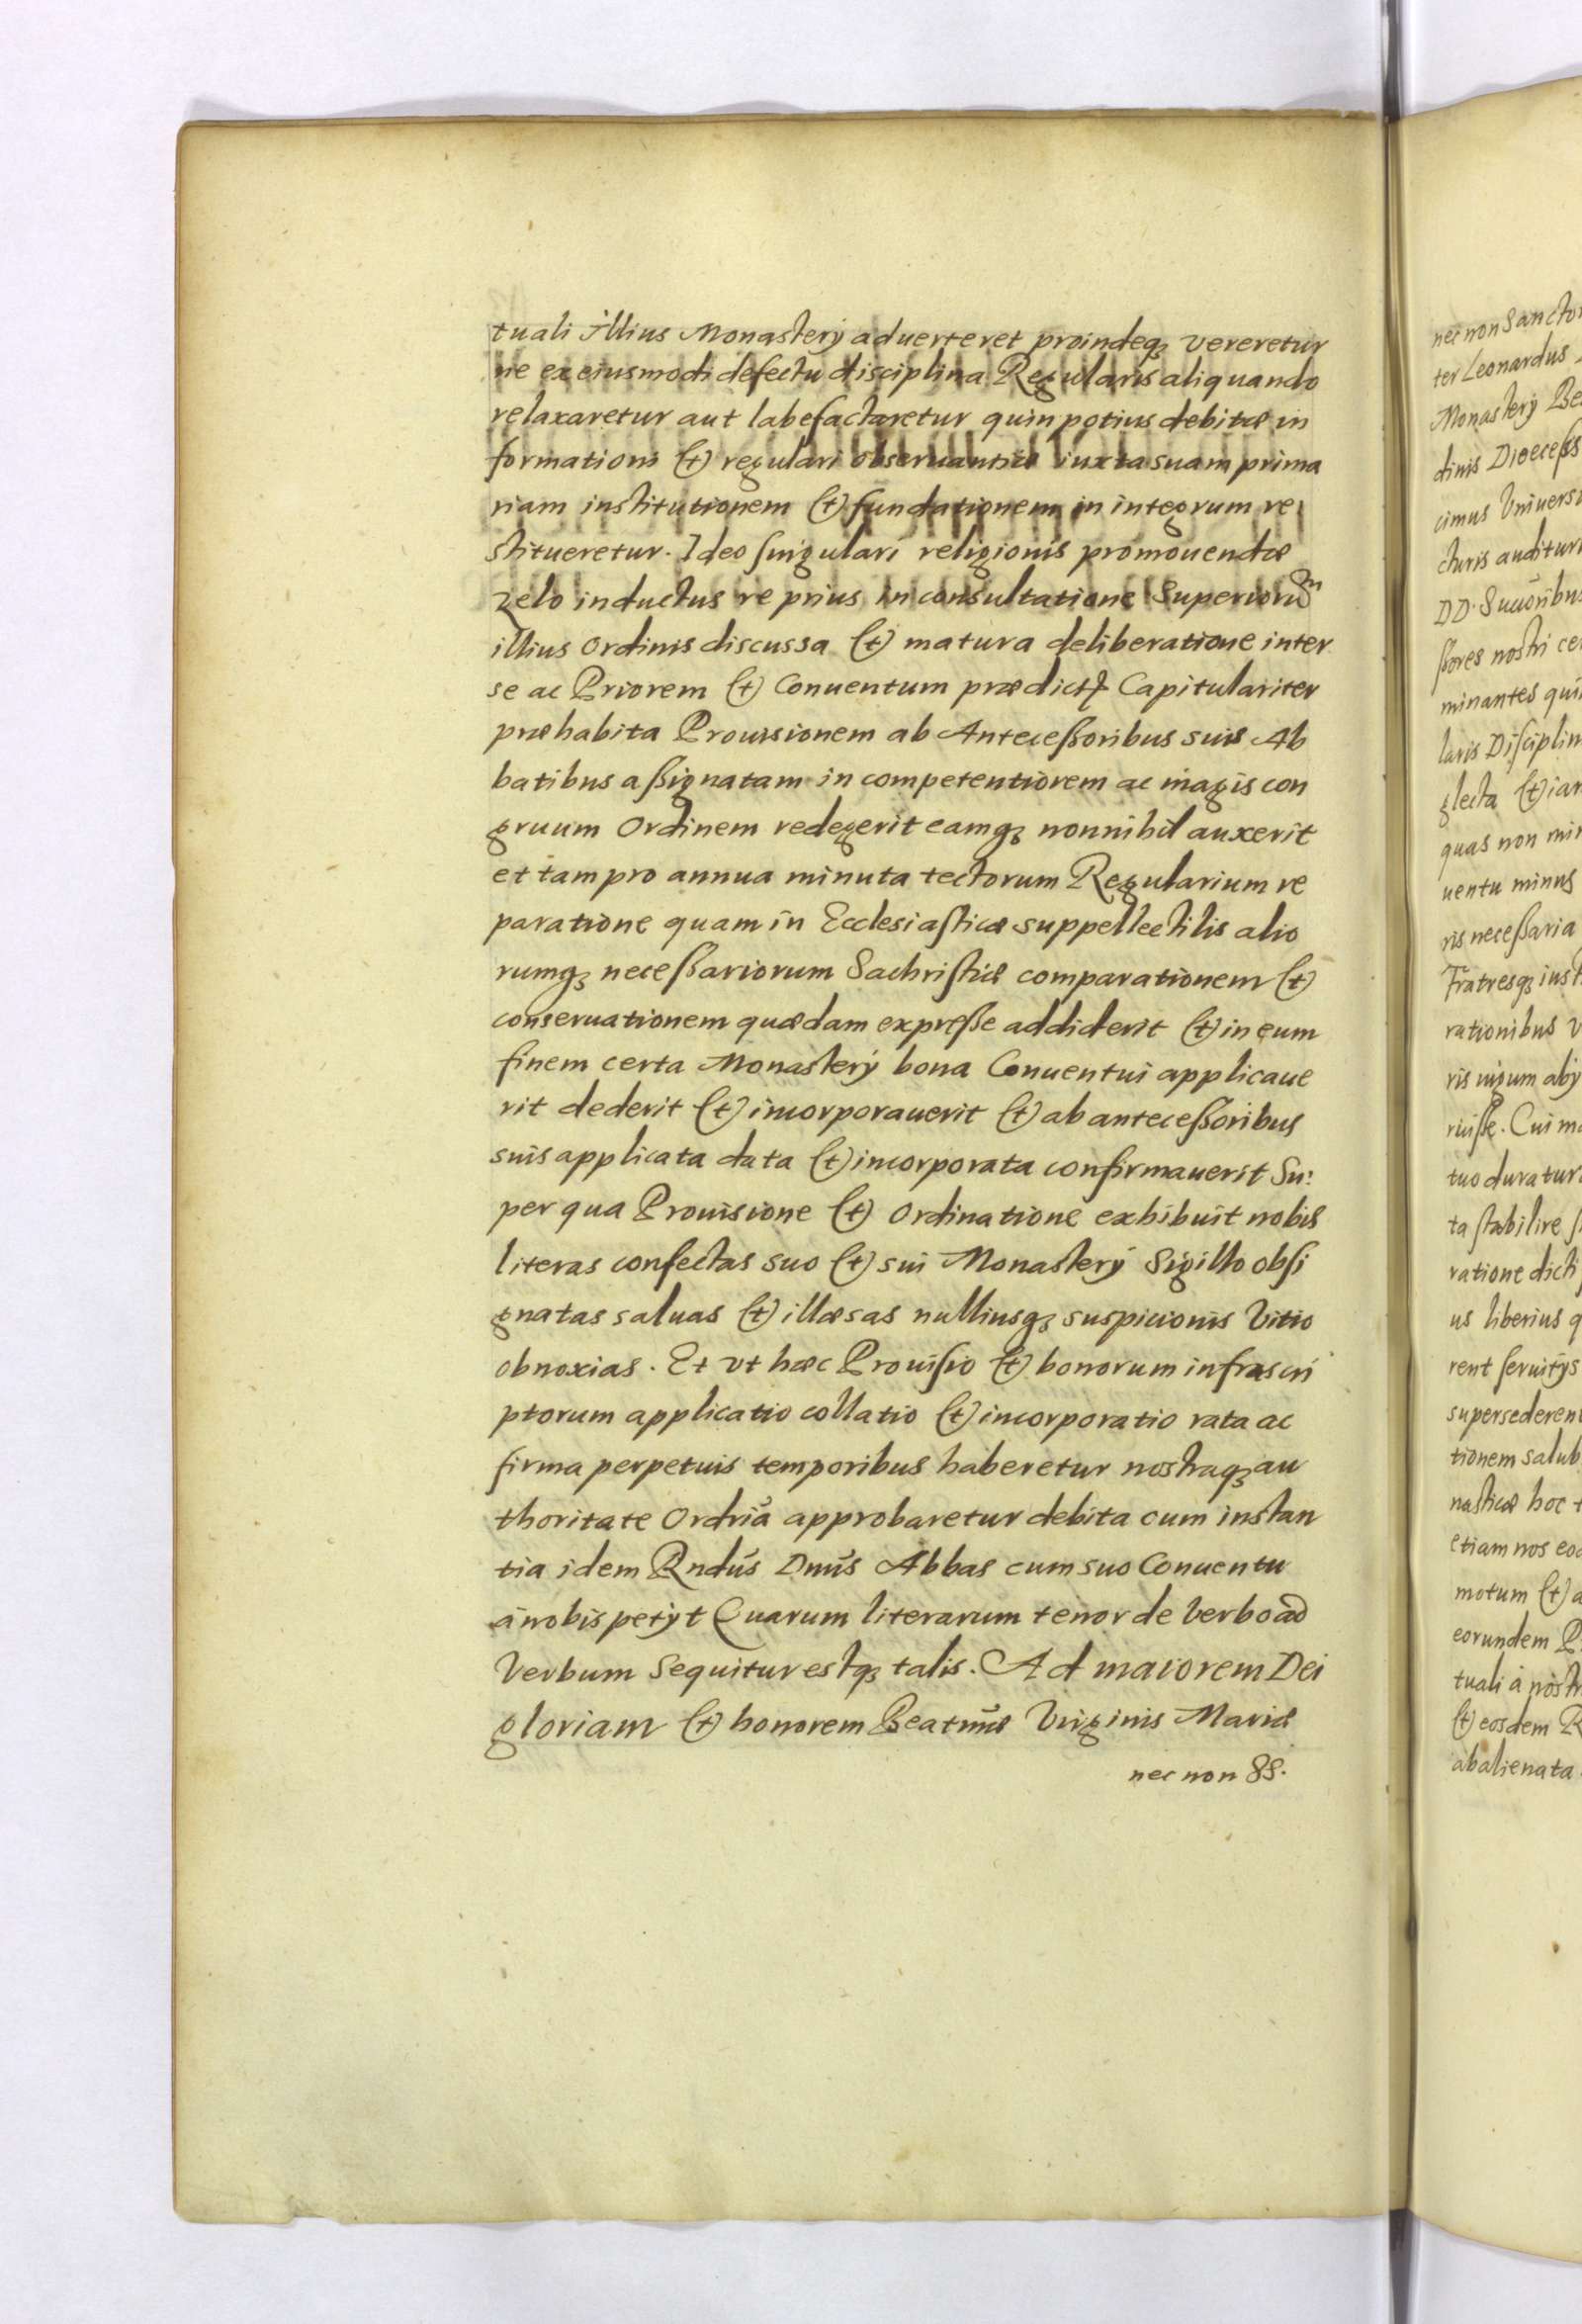 tuali illius Monasterÿ aduerteret proindeqꝫ vereretur
ne ex eiusmodi defectu disciplina Regularis aliquando
relaxaretur aut labefactaretur quin potius debitæ in
formationi (et) regulari obseruantiæ iuxta suam prima
riam institutionem (et) fundationem in integrum re
stitueretur. Ideo singulari religionis promouendæ
zelo inductus re prius in consultatione Superiorũ
illius Ordinis discussa (et) matura deliberatione inter
se ac Priorem (et) Conuentum prædict Capitulariter
præhabita Prouisionem ab Antecessoribus suis Ab
batibus assignatam in competentiorem ac magis con
gruum Ordinem redegerit eamqꝫ nonnihil auxerit
et tam pro annua minuta tectorum Regularium re
paratione quam in Ecclesiasticæ suppellectilis alio
rumqꝫ necessariorum Sachristiæ comparationem (et)
conseruationem quædam expresse addiderit (et) in eum
finem certa Monasterÿ bona Conuentui applicaue
rit dederit (et) incorporauerit (et) ab antecessoribus
suis applicata data (et) incorporata confirmauerit Su:
per qua Prouisione (et) Ordinatione exhibuit nobis
literas confectas suo (et) sui Monasterÿ Sigillo obsi
gnatas saluas (et) illæsas nulliusqꝫ suspicionis Vitio
obnoxias. Et vt hæc Prouisio (et) bonorum infrascri
ptorum applicatio collatio (et) incorporatio rata ac
firma perpetuis temporibus haberetur nostraqꝫ au
thoritate Ordria approbaretur debita cum instan
tia idem Rndus Dnus Abbas cum suo Conuentu
à nobis petÿt Quarum literarum tenor de Verbo ad
Verbum Sequitur estqꝫ talis. Ad maiorem Dei
gloriam (et) honorem Beatmæ Virginis Mariæ
nec non SS.
nec non Sancto
ter Leonardus
Monasterÿ Be
dinis Dioecess
cimus Vniuers
cturis auditur
DD. Succoribus
ssores nostri ce
minantes qui
laris Disciplin
glecta (et) iam
quas non min
uentu minus
ris necessaria
Fratresqꝫ iust
rationibus v
ris iugum abÿ
ruisse. Cui ma
tuo duratur
ta stabilire s
ratione dicti
us liberius q
rent seruitÿs
supersederent
tionem salub
nasticæ hoc t
etiam nos eod
motum (et) a
eorundem P
tuali à nostr
(et) eosdem R
abalienata